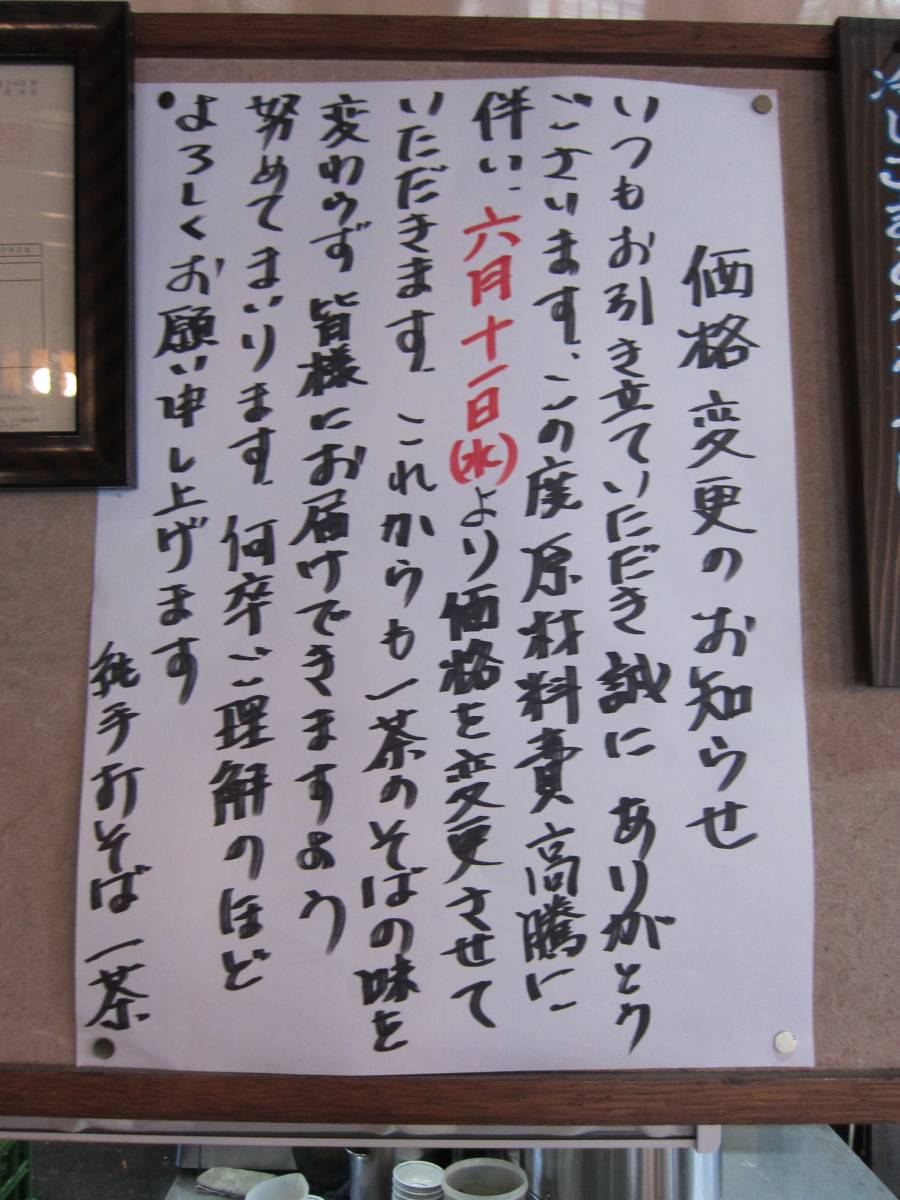 価格変更のお知らせ
いつもお引き立ていただき誠にありがとう
ございます。この度原材料費高騰に
伴い、六月十一日(水)より価格を変更させて
いただきます。これからも一茶のそばの味を
変わらず皆様にお届けできますよう
努めてまいります。何卒ご理解のほど
よろしくお願い申し上げます
純手打そば 一茶